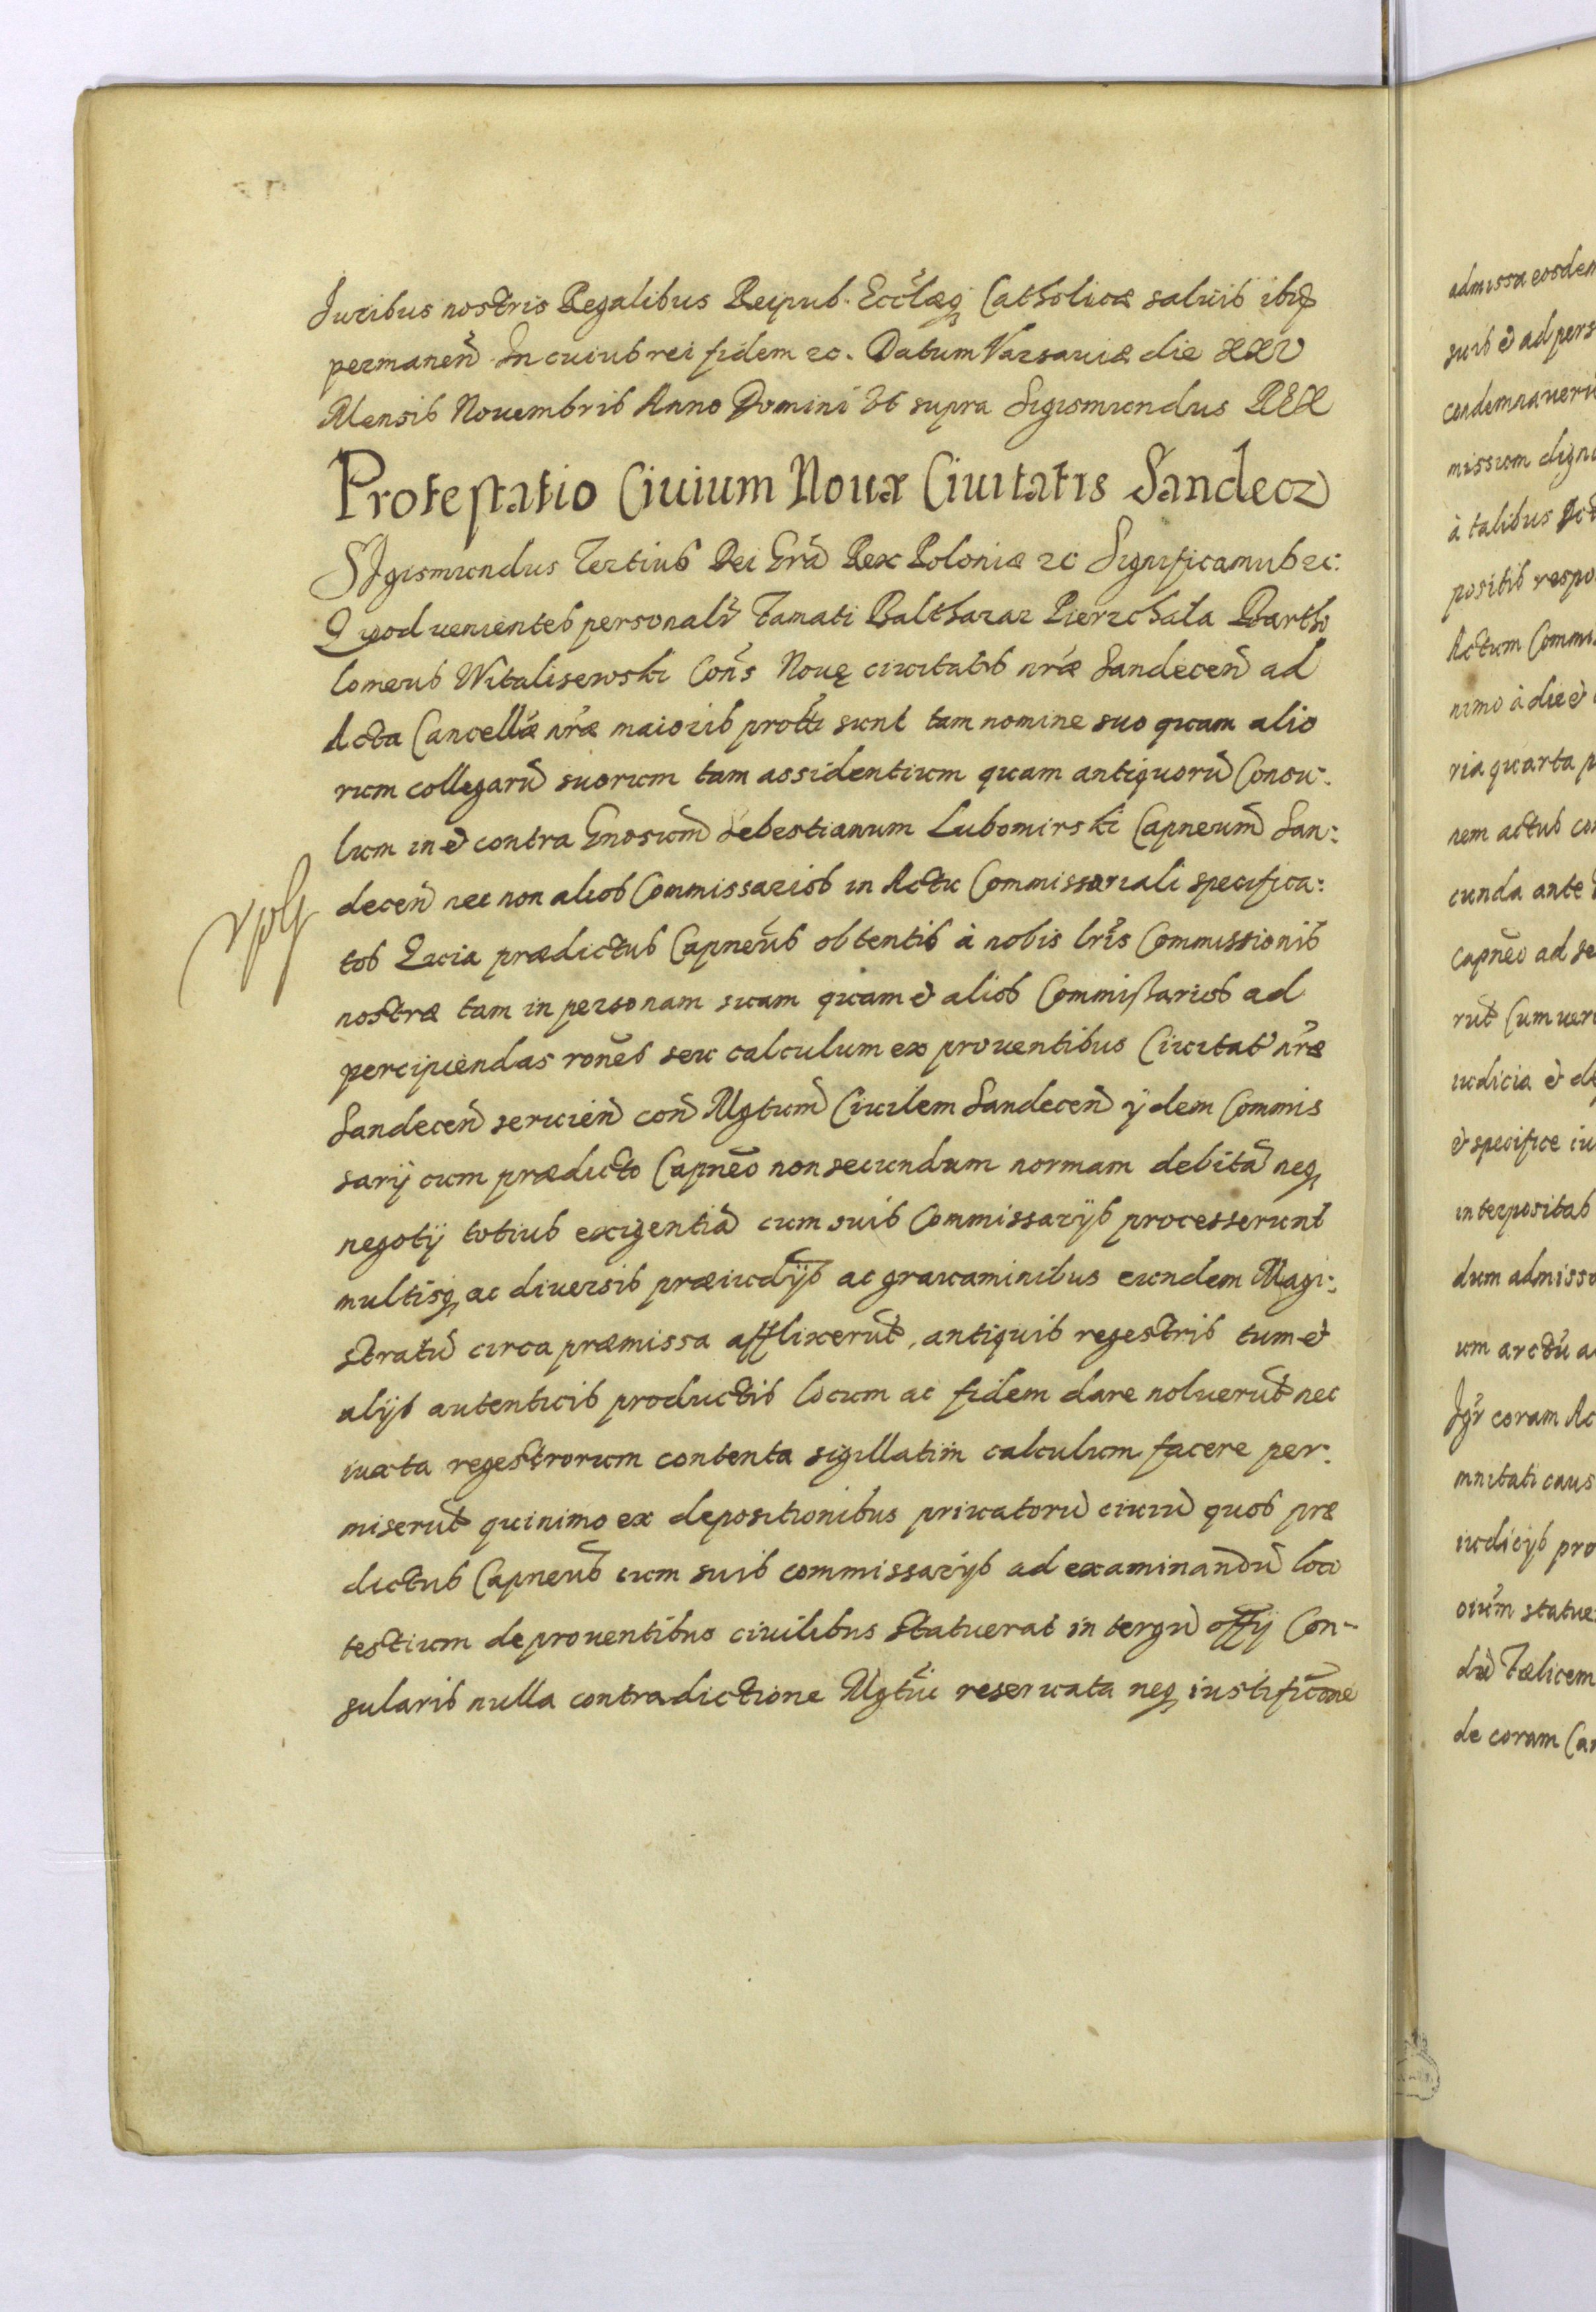 Juribus nostris Regalibus Reipub. Eccłæq Catholicæ saluis ibiq
permaneñ In cuius rei fidem etc. Datum Varsauiæ die XXV
Mensis Nouembris Anno Domini Vt supra Sigismundus REX
Protestatio Ciuium Nouæ Ciuitatis Sandecz
SIgismundus Tertius Dei Grã Rex Poloniæ etc Significamus etc:
Quod uenientes personalr̃ Famati Balthazar Pierzchała Bartho
lomeus Witalisewski Coñs Nouę ciuitatis nræ Sandeceñ ad
Acta Cancellæ nræ maioris protti sunt tam nomine suo quam alio
rum collegarũ suorum tam assidentium quam antiquorũ Consu:
lum in et contra Gnosum̃ Sebestianum Lubomirski Capneum̃ San:
deceñ nec non alios Commissarios in Actu Commissoriali specifica:
tos Quia prædictus Capneus̃ obtentis à nobis lr̃is Commissionis
nostræ tam in personam suam quam et alios Commissarios ad
percipiendas rones̃ seu calculum ex prouentibus Ciuitat nræ
Sandeceñ seruieñ coñ Mgtum̃ Ciuilem Sandeceñ ijdem Commis
sarij cum prædicto Capneõ non secundum normam debitã neq
negotij totius exigentiã cum suis Commissarijs processerunt
multisq ac diuersis præiudijs ac grauaminibus eundem Magi:
stratũ circa præmissa afflixerũt, antiquis regestris tum et
alijs autenticis productis locum ac fidem dare noluerũt nec
iuxta regestrorum contenta sigillatim calculum facere per:
miserũt quinimo ex depositionibus priuatorũ ciuiũ quos præ
dictus Capneus̃ cum suis commissarijs ad examinandũ loco
testium de prouentibus ciuilibus statuerat in tergũ offij Con-
sularis nulla contradictione Mgtũi reseruata neq iustificõne
admissa eosdem
suis et ad pers
condemnaueri
missum dign
à talibus
positis respo
Actum Commis
nimo à die et
ria quarta p
nem actus co
cunda ante
Capneõ ad se
rũt Cum uer
iudicia et de
et specifice iu
interpositas
dum admisso
um arctũ a
Igr̃ coram Ac
mnitati caus
iudicijs pro
oium̃ statue
dũ Fælicem
de coram Ca